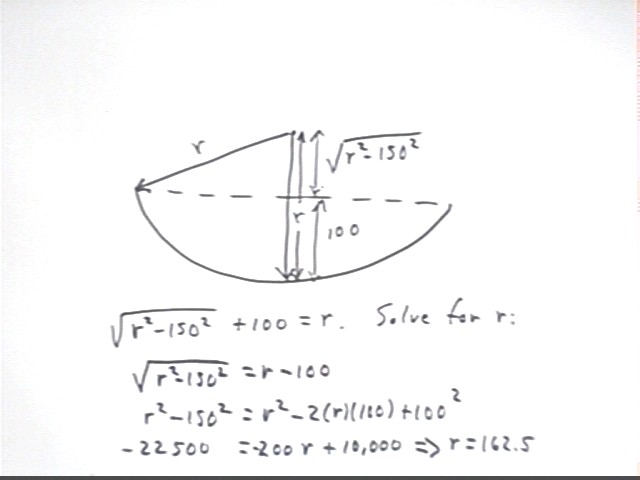 r
√r²-150²
r
100
√r²-150² +100 = r. Solve for r:
√r²-150² = r-100
r²-150² = r²-2(r)(100)+100²
-22500 = -200r+10,000 => r=162.5